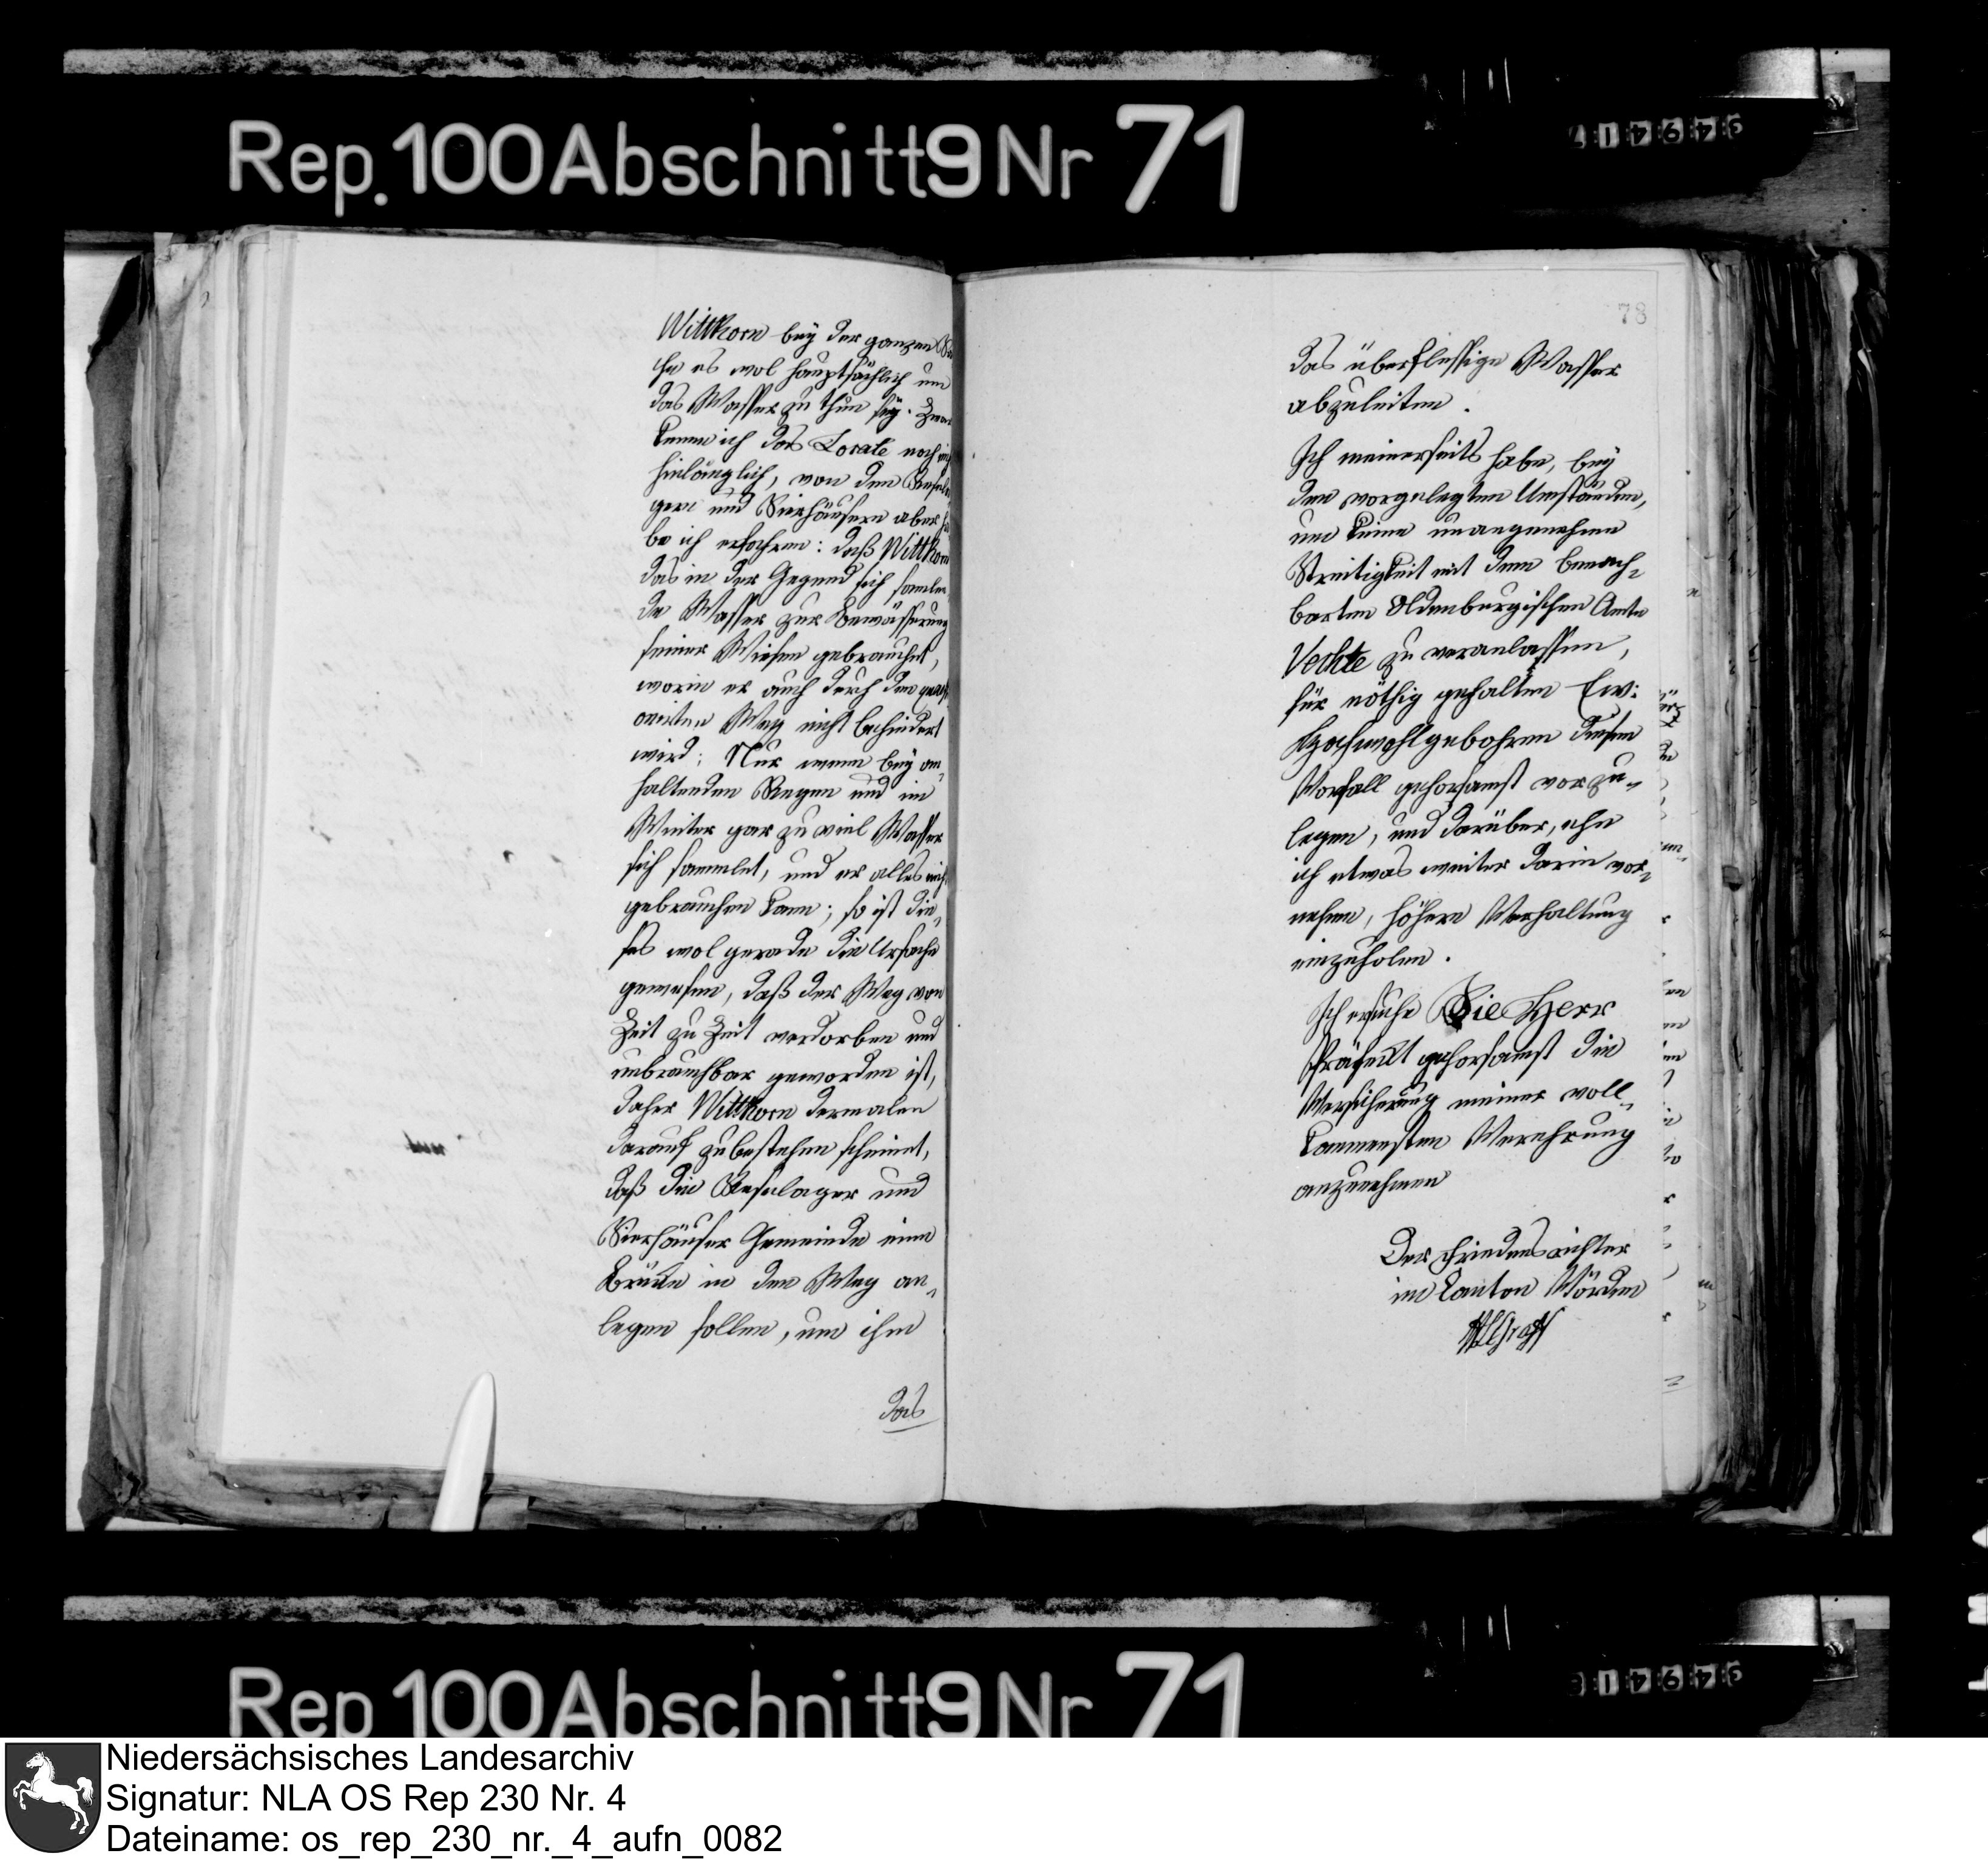 Rep. 100 Abschnitt 9 Nr 71
34941
Wittkorn bey der ganzen Sa
che es wol hauptsächlich um
das Wasser zu thun sey. Zwar
kenne ich das Locale noch nicht
hinlänglich, von den
gern und Sierhäusern aber ha
be ich erfahren: daß Wittkorn
das in der Gegend sich samlen
de Wasser zur Bewässerung
seiner Wiesen gebrauchet,
worin er auch durch den quaest
onirten Weg nicht behindert
wird; Nur wenn bey an„
haltenden Regen und im
Winter gar zu viel Wasser
sich sammlet, und er alles nicht
gebrauchen kann; so ist die„
ses wol gerade die Ursache
gewesen, daß der Weg von
Zeit zu Zeit verdorben und
unbrauchbar geworden ist,
daher Wittkorn dermalen
darauf zu bestehen scheinet,
daß die und
Sierhäuser Gemeinde eine
Brücke in den Weg an„
legen sollen, um ihm
das
78
das überflessige Wasser
abzuleiten.
Ich meinerseits habe, bey
den vorgelegten Umständen,
um keine unangenehme
Streitigkeit mit dem benach„
barten Oldenburgischen Amte
Vechte zu veranlassen,
für nöthig gehalten Ew:
Hochwohlgebohren diesen
Vorfall gehorsamst vorzu„
legen, und darüber, ehe
ich etwas weiter darin vor„
nehme, höhere Verhaltung
einzuholen.
Ich ersuche Sie Herr
Präfect gehorsamst die
Versicherung meiner voll„
kommensten Verehrung
anzunehmen
Der Friedensrichter
im Canton Vörden
Rep 100 Abschnitt 9 Nr 71
Niedersächsisches Landesarchiv
Signatur: NLA OS Rep 230 Nr. 4
Dateiname: os_rep_230_nr._4_aufn_0082